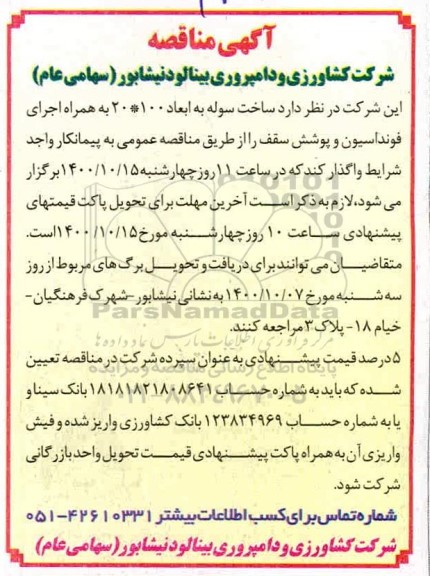 آگهی مناقصه
شرکت کشاورزی و دامپروری بینالود نیشابور (سهامی عام)
این شرکت در نظر دارد ساخت سوله به ابعاد ۱۰۰*۲۰ به همراه اجرای
فونداسیون و پوشش سقف را از طریق مناقصه عمومی به پیمانکار واجد
شرایط واگذار کند که در ساعت ۱۱ روز چهارشنبه ۱۴۰۰/۱۰/۱۵ برگزار
می شود، لازم به ذکر است آخرین مهلت برای تحویل پاکت قیمتهای
پیشنهادی ساعت ۱۰ روز چهارشنبه مورخ ۱۴۰۰/۱۰/۱۵ است.
متقاضیان می توانند برای دریافت و تحویل برگ های مربوط از روز
سه شنبه مورخ ۱۴۰۰/۱۰/۰۷ به نشانی نیشابور - شهرک فرهنگیان -
خیام ۱۸ - پلاک ۳ مراجعه کنند.
ParsNamadData
پایگاه اطلاع رسانی مناقصه و مزایده
۵ درصد قیمت پیشنهادی به عنوان سپرده شرکت در مناقصه تعیین
شده که باید به شماره حساب ۱۸۱۸۱۸۲۱۸۰۸۶۴۱ بانک سینا و
یا به شماره حساب ۱۲۳۸۳۴۹۶۹ بانک کشاورزی واریز شده و فیش
واریزی آن به همراه پاکت پیشنهادی قیمت تحویل واحد بازرگانی
شرکت شود.
شماره تماس برای کسب اطلاعات بیشتر ۴۲۶۱۰۳۳۱-۰۵۱
شرکت کشاورزی و دامپروری بینالود نیشابور (سهامی عام)